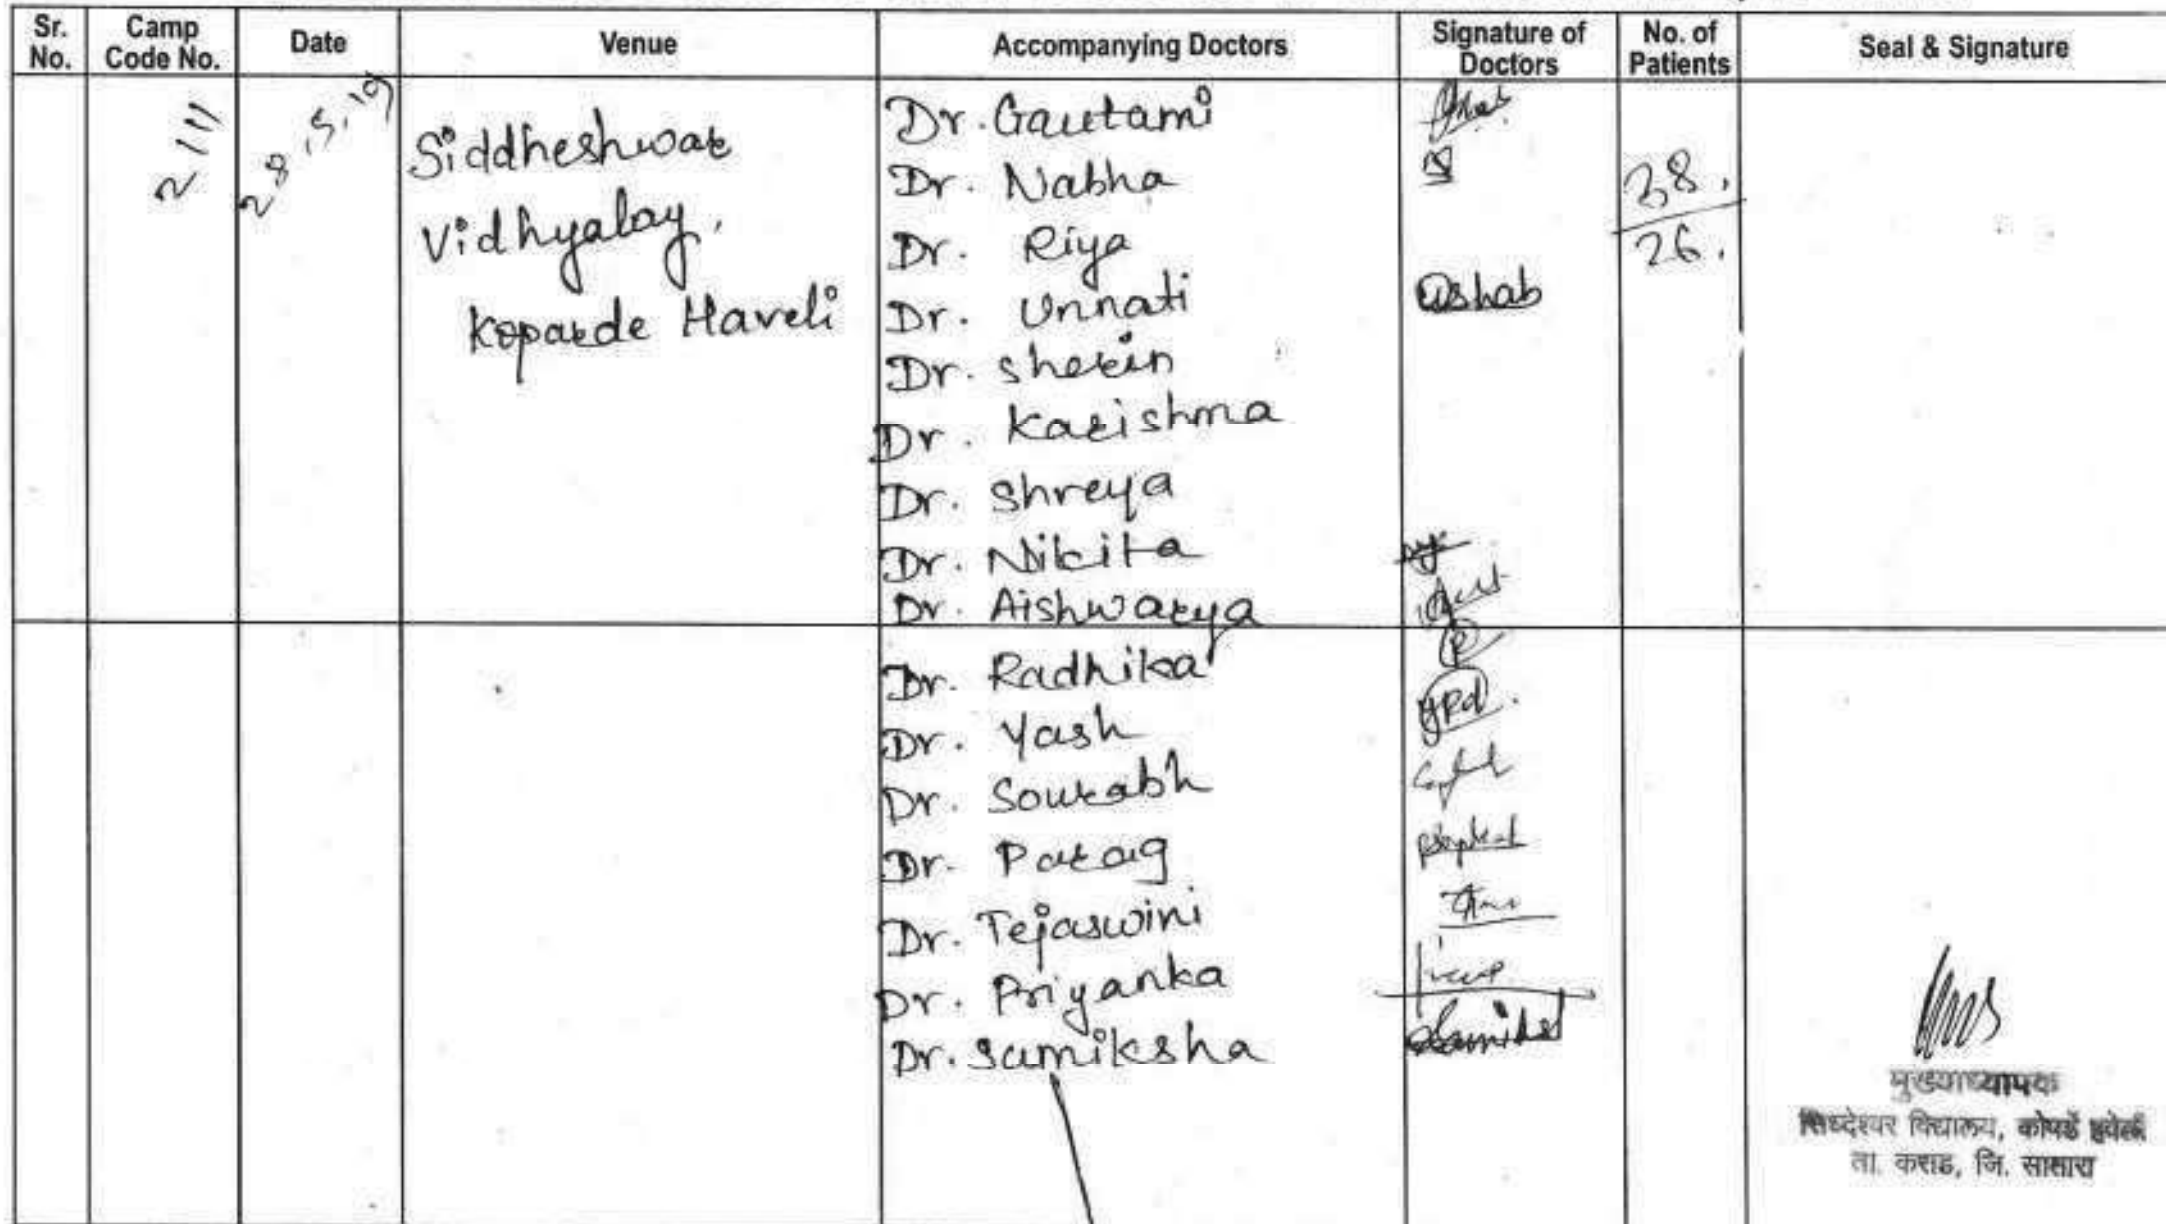 Sr. No. Camp Code No. Date Venue Accompanying Doctors Signature of Doctors No. of Patients Seal & Signature
2111 28.5.19 Siddheshwar Dr. Gautami
Vidhyalay, Dr. Nabha 38.
Dr. Riya 26.
Koparde Haveli Dr. Unnati
Dr. Sherin
Dr. Karishma
Dr. Shreya
Dr. Nikita
Dr. Aishwarya
Dr. Radhika
Dr. Yash
Dr. Sourabh
Dr. Parag
Dr. Tejaswini
Dr. Priyanka
Dr. Samiksha
मुख्याध्यापक
सिध्देश्वर विद्यालय, कोपर्डे हवेली
ता. कराड, जि. सातारा